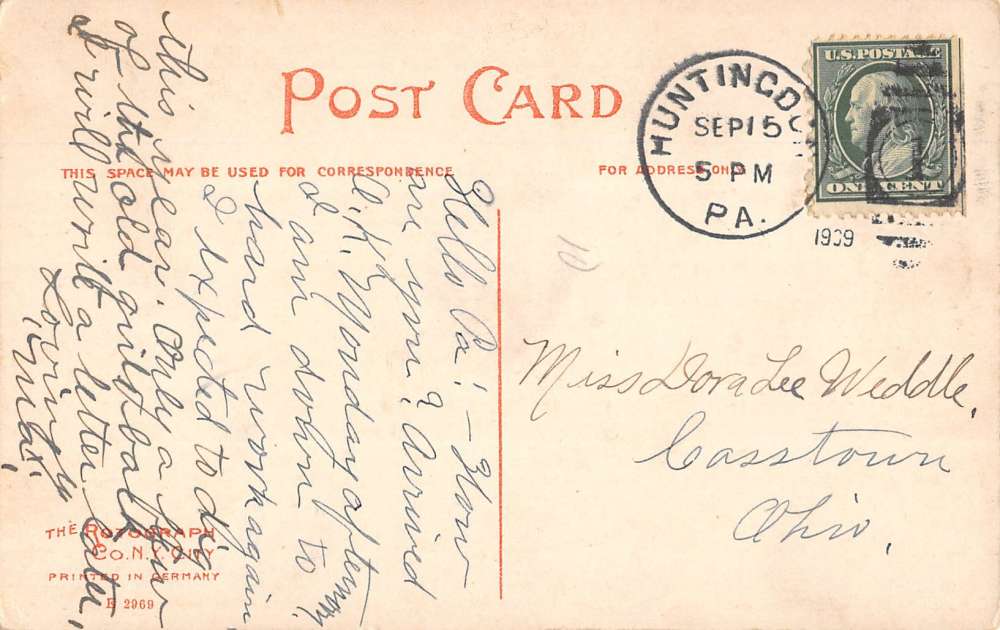 POST CARD
THIS SPACE MAY BE USED FOR CORRESPONDENCE
FOR ADDRESS ONLY
HUNTINGDO
SEP 15
5 PM
PA.
1909
U.S. POSTAGE
ONE CENT
1
10
Miss Dora Lee Weddle,
Casstown
Ohio,
Hello Pa! - How
are you? Arrived
O.K. Monday afternoon
I am down to
hard work again
I expected to dig
this year. Only a few
of the old girls back
I will write a letter later,
Lovingly
THE ROTOGRAPH
CO. N.Y. CITY
PRINTED IN GERMANY
E 2969